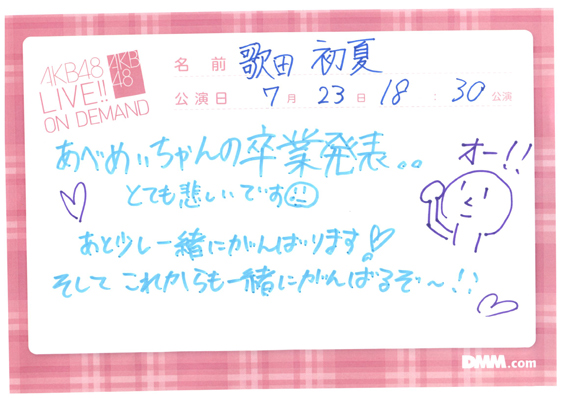 AKB48
LIVE!!
ON DEMAND
AKB
48
名前 歌田 初夏
公演日 7月 23日 18:30公演
あべめぃちゃんの卒業発表。。
とても悲しいです
オー!!
あと少し一緒にがんばります!
そして これからも一緒にがんばるぞ〜!!
DMM.com